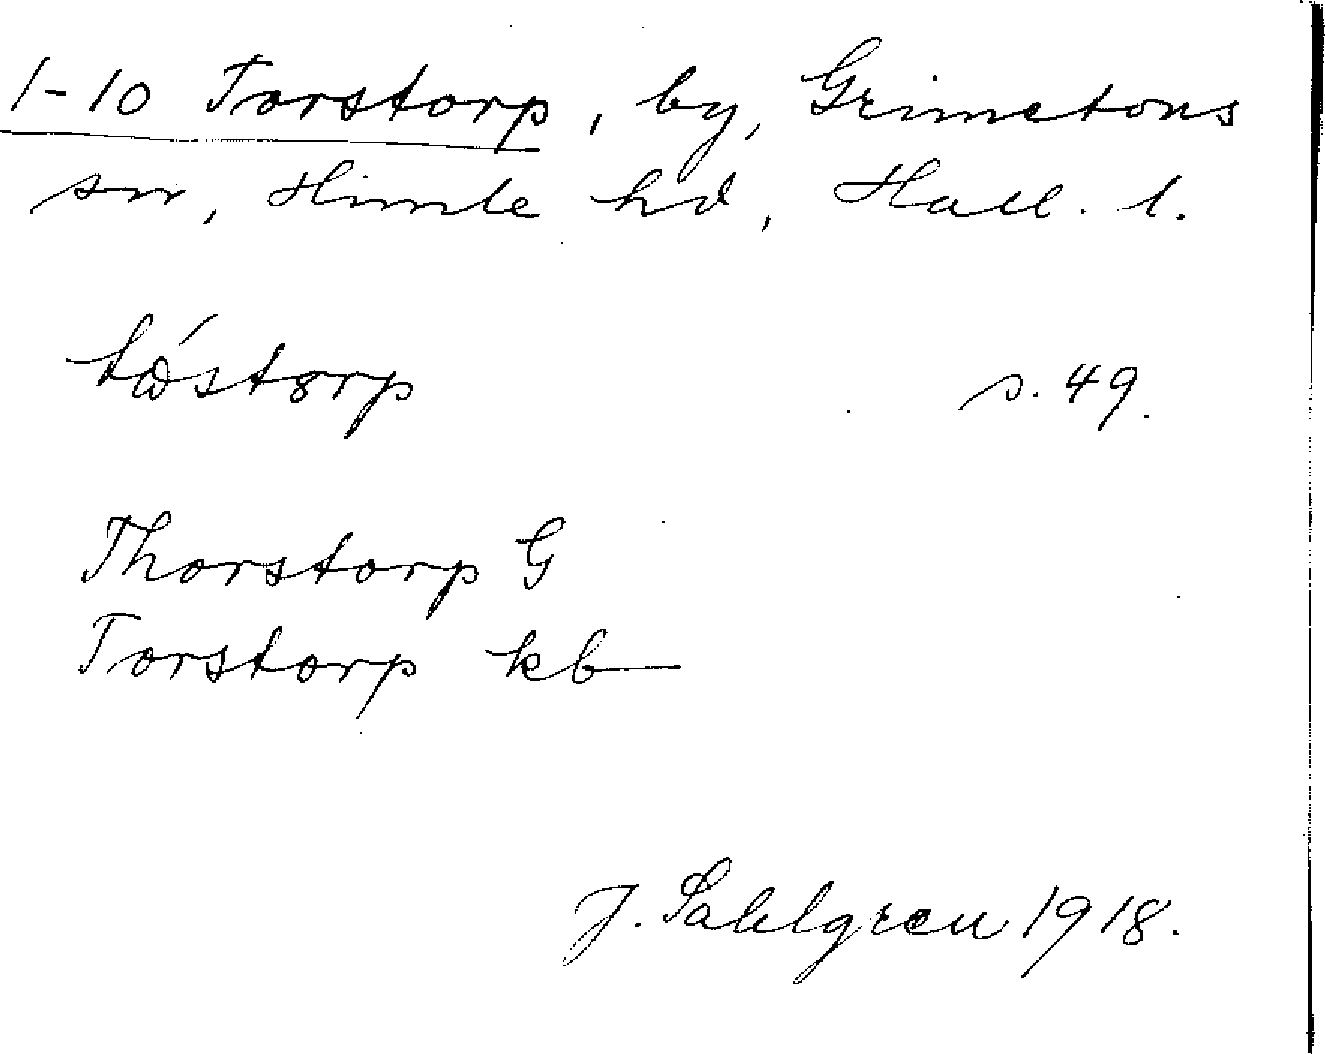 1-10 Torstorp, by, Grimetons
sn, Himle hd, Hall. l.
s. 49.
Thorstorp G
Torstorp kb
J. Sahlgren 1918.